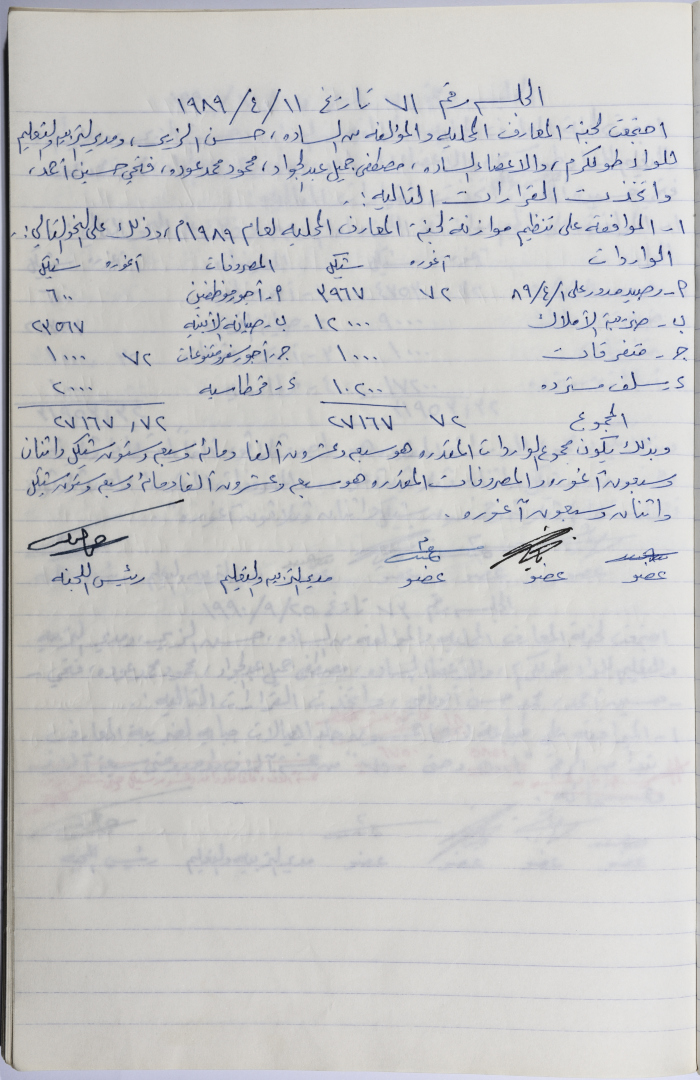 الجلسه رقم ٧١ تاريخ ١١/٤/١٩٨٩
اجتمعت لجنة المعارف المحليه والمؤلفه من الساده، حسن الزير، ومدير التربيه والتعليم
للواء طولكرم، والاعضاء الساده، مصطفى جميل عبدالجواد، محمود محمد عوده، فتحي حسين احمد،
واتخذت القرارات التاليه:
١- الموافقه على تنظيم موازنة لجنة المعارف المحليه لعام ١٩٨٩م، وذلك على النحو التالي:
الواردات آغوره شيكل المصروفات آغوره شيكل
٢- رصيد مدور على ٨٩/٤/١ ٧٢ ٣٩٦٧ ٢- أجور موظفين ٦٠٠
ب- ضريبة الأملاك ١٢٠٠٠ ب- صيانة الأبنيه ٢٣٥٦٧
ج- متفرقات ١٠٠٠ ج- أجور سفر ومتنوعات ٧٢ ١٠٠٠
ء- سلف مسترده ١٠٢٠٠ ء- قرطاسيه ٢٠٠٠
المجموع ٧٢ ٢٧١٦٧ ٧٢ر ٢٧١٦٧
وبذلك يكون مجموع الواردات المقدره هو سبعه وعشرون آلفا ومائه وسبعه وستون شيكل واثنان
وسبعون آغوره والمصروفات المقدره هو سبعه وعشرون آلفا ومائه وسبعه وستون شيكل
واثنان وسبعون آغوره.
عضو عضو عضو مدير التربيه والتعليم رئيس اللجنه